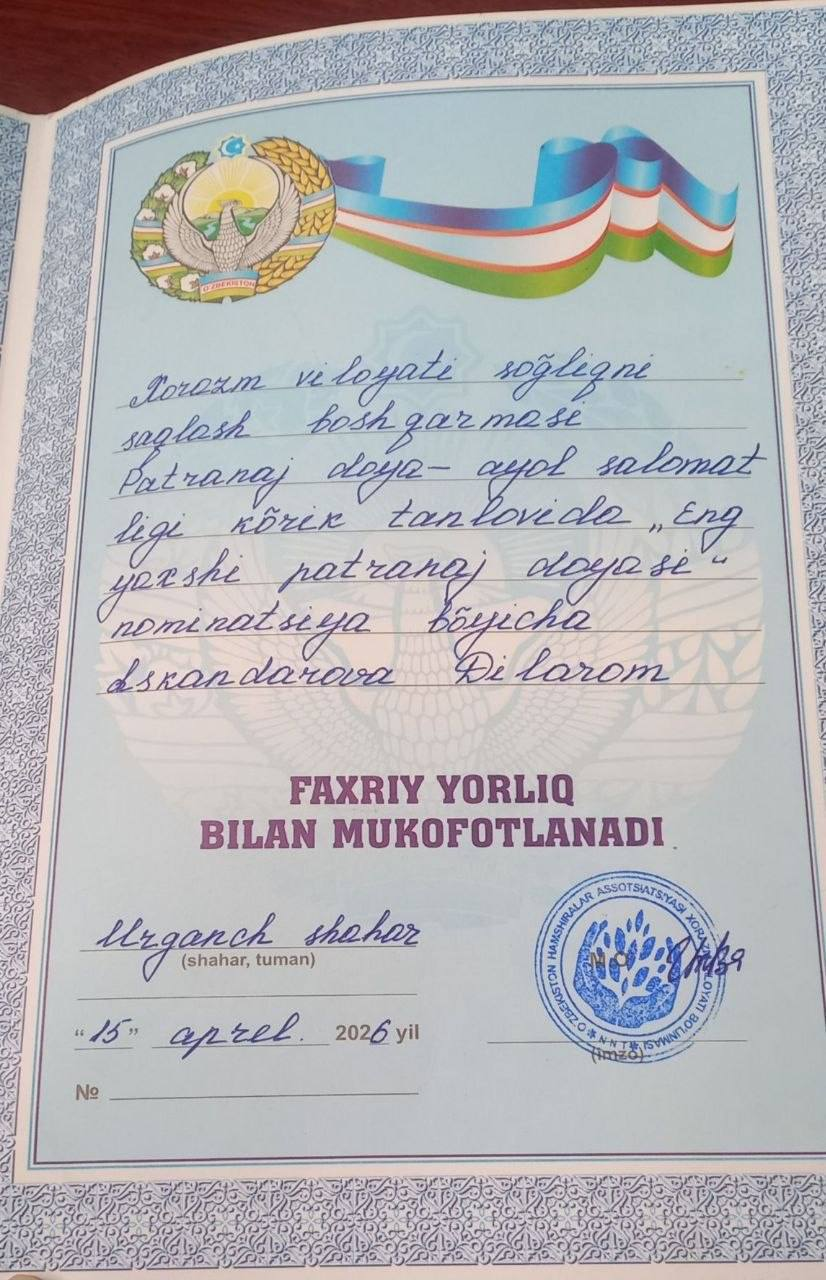 O'ZBEKISTON
Xorazm viloyati sog̃liqni
saqlash boshqarmasi
Patranaj doya- ayol salomat
ligi kõrik tanlovida „Eng
yaxshi patranaj doyasi“
nominatsiya bõyicha
Iskandarova Dilarom
FAXRIY YORLIQ
BILAN MUKOFOTLANADI
Urganch shahar
(shahar, tuman)
“15” aprel. 2026 yil
№
O'ZBEKISTON HAMSHIRALAR ASSOTSIATSIYASI BO'LINMASI NNT
(imzo)